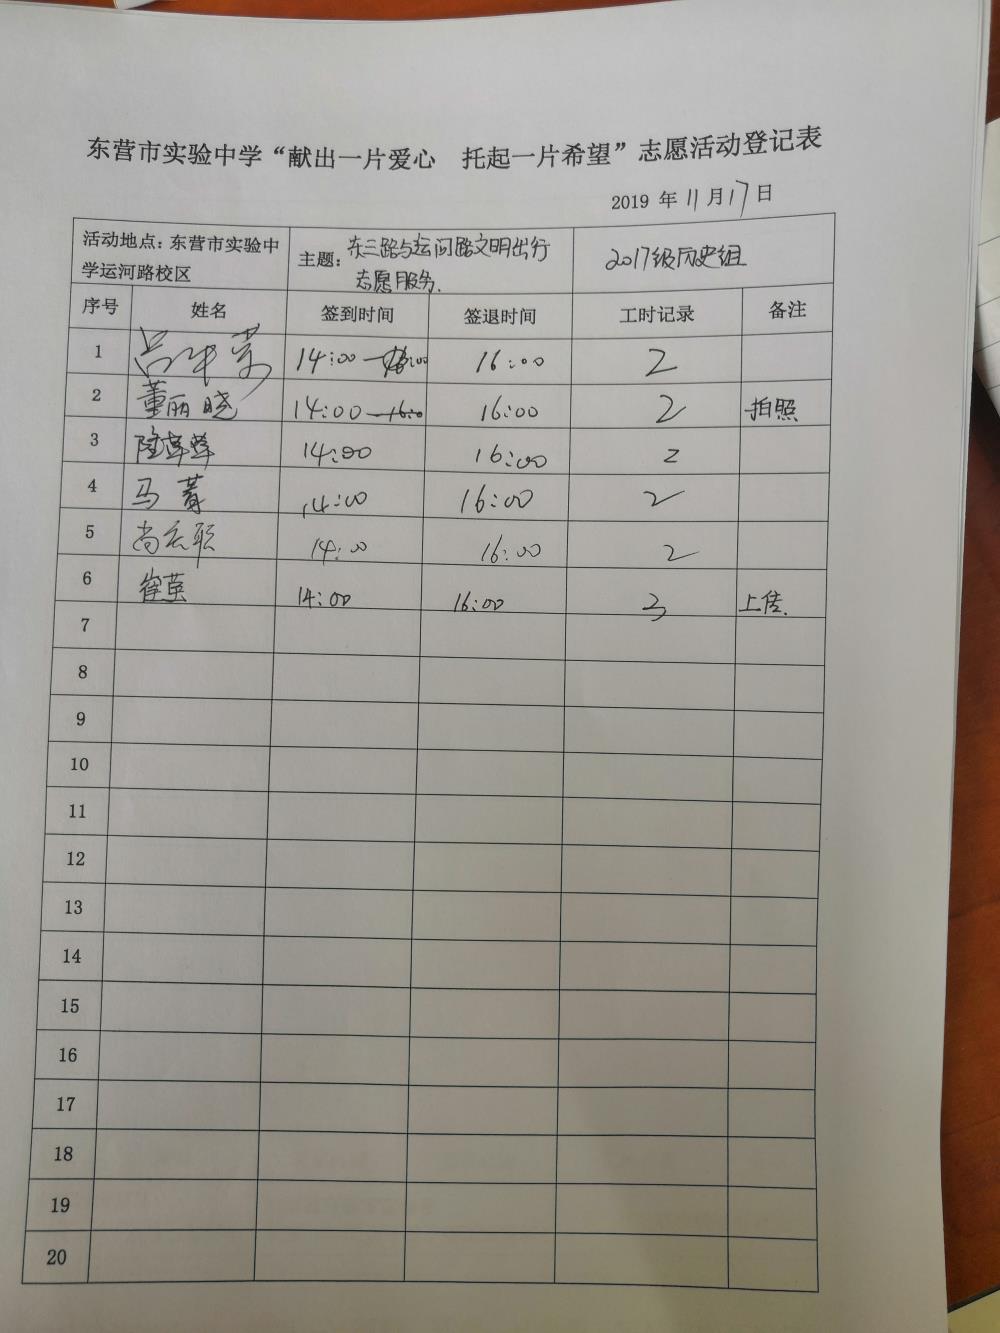 东营市实验中学“献出一片爱心 托起一片希望”志愿活动登记表
2019 年 11 月 17 日
活动地点：东营市实验中
学运河路校区
主题：东三路与运河路文明出行
志愿服务.
2017级历史组
序号 姓名 签到时间 签退时间 工时记录 备注
1 14:00 16:00 2
2 董丽晓 14:00 16:00 2 拍照
3 14:00 16:00 2
4 马菁 14:00 16:00 2
5 14:00 16:00 2
6 崔英 14:00 16:00 2 上传.
7
8
9
10
11
12
13
14
15
16
17
18
19
20